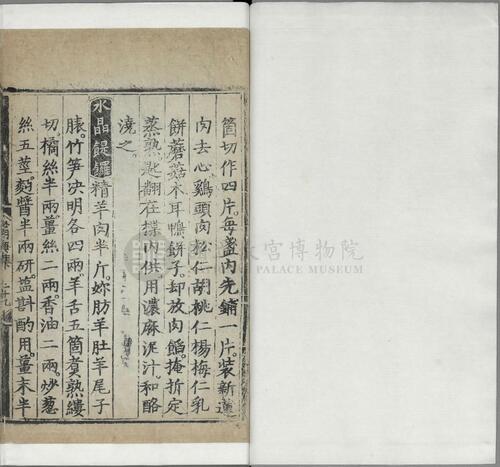 箇切作四片。每盞內先鋪一片。裝新蓮
肉去心鷄頭肉松仁胡桃仁楊梅仁乳
餅蘑菇木耳鴨餅子。却放肉餡。掩折定
蒸熟匙翻在楪內供。用濃麻泥汁。和酪
澆之。
水晶䭔饠精羊肉半斤妳肪羊肚羊尾子
膁。竹笋决明各四兩。羊舌五箇煑熟縷
切。橘絲半兩。薑絲二兩。香油二兩。炒葱
絲五莖。麪醬半兩研。塩斟酌用。薑末半
宮博物院
PALACE MUSEUM